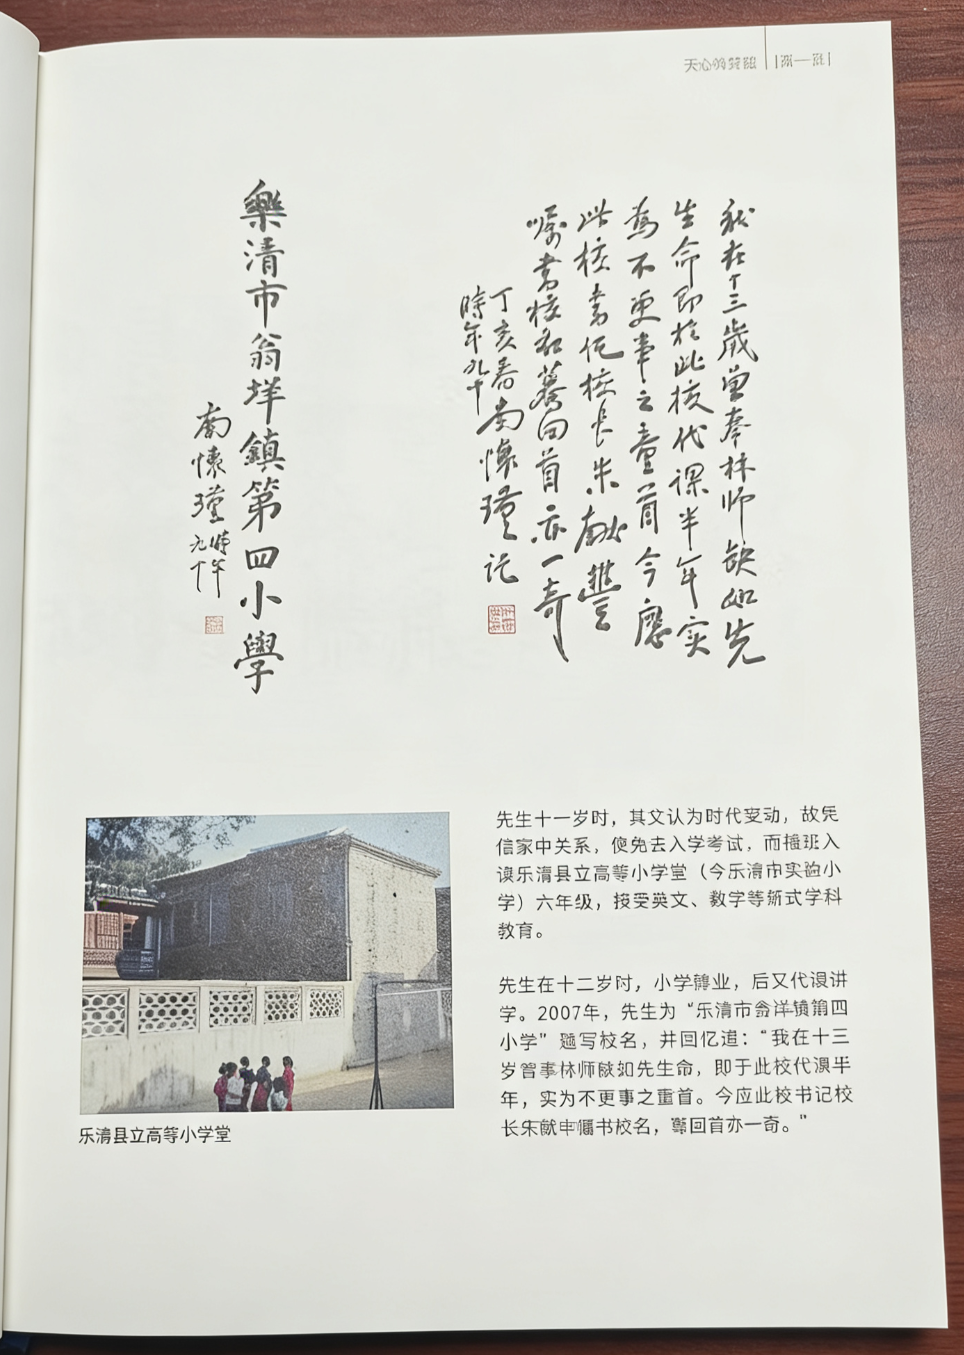 天心
我在十三歲曾奉林师缺如先
生命即於此校代課半年实
為不更事之童首今應
此校書 校長朱献豐
嘱書校名驀回首亦一奇
丁亥春南懷瑾记
時年九十
樂清市翁垟鎮第四小學
南懷瑾時年
九十
先生十一岁时，其父认为时代变动，故凭
信家中关系，免去入学考试，而插班入
读乐清县立高等小学堂（今乐清市实验小
学）六年级，接受英文、数学等新式学科
教育。
先生在十二岁时，小学毕业，后又代课讲
学。2007年，先生为“乐清市 镇第四
小学”题写校名，并回忆道：“我在十三
岁曾 林师缺如先生命，即于此校代课半
年，实为不更事之童首。今应此校书记校
长朱献 嘱书校名，蓦回首亦一奇。”
乐清县立高等小学堂